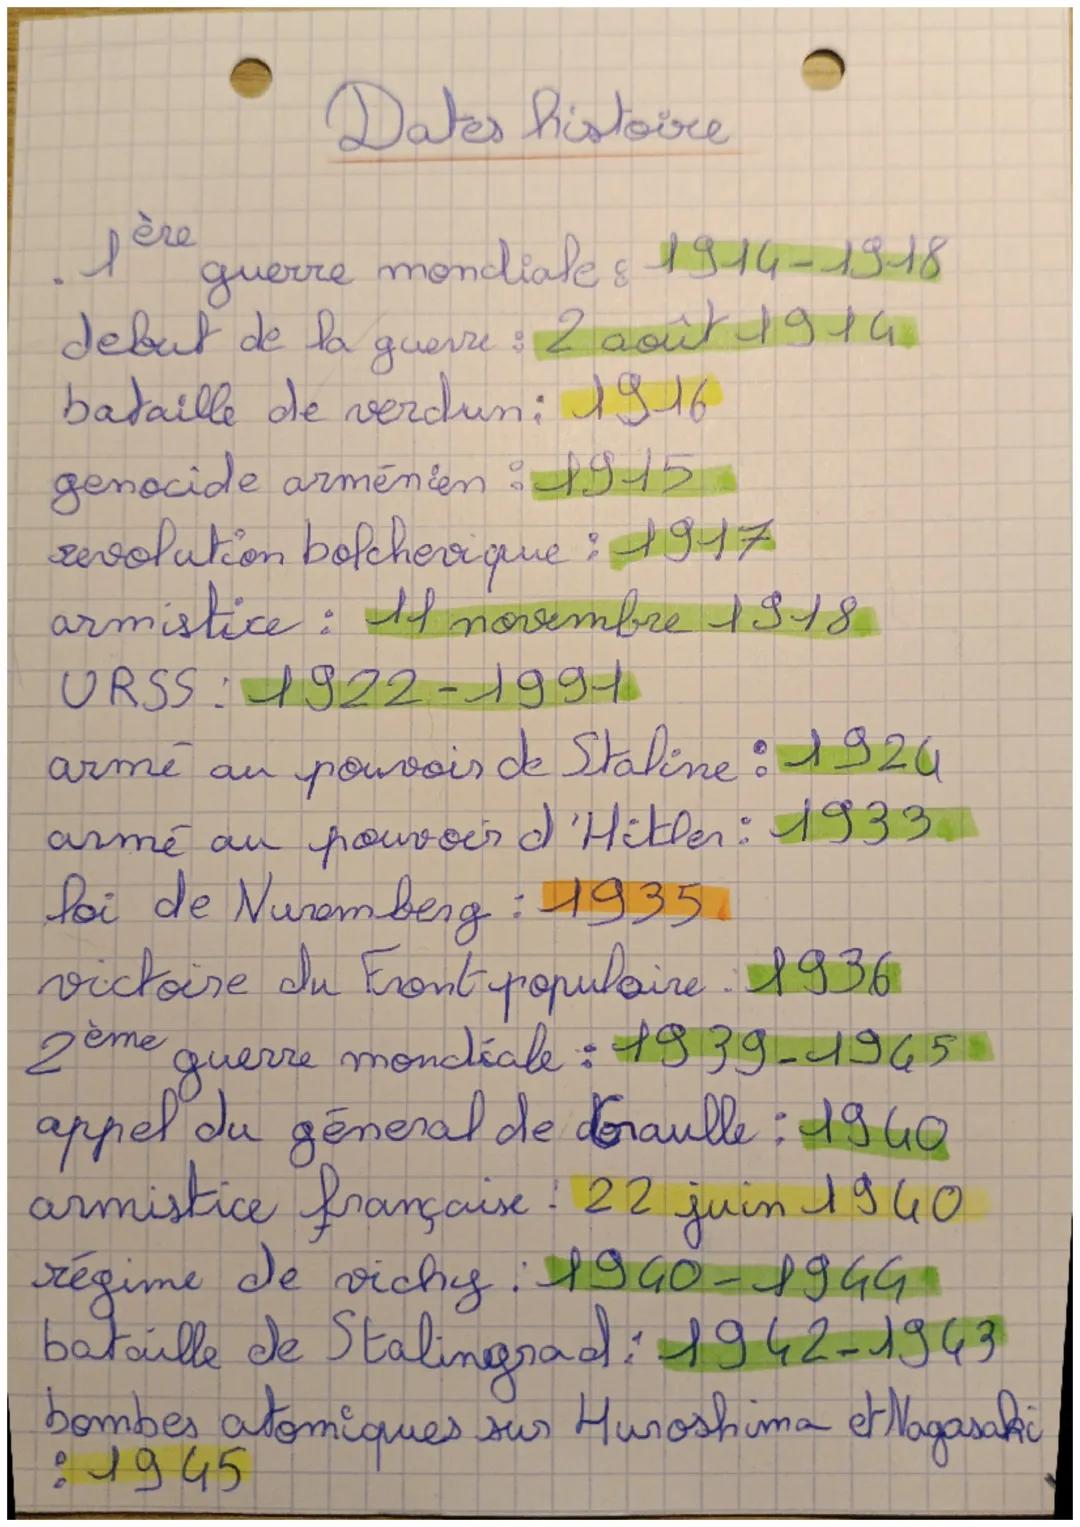 Dates histoire
. 1ère guerre mondiale : 1914-1918
debut de la guerre : 2 août 1914
bataille de verdun : 1916
genocide arménien : 1915
revolution bolchevique : 1917
armistice : 11 novembre 1918
URSS : 1922-1991
armé au pouvois de Staline : 1924
armé au pouvoir d'Hitler : 1933
loi de Nuremberg : 1935
victoire du Front populaire : 1936
2ème guerre mondiale : 1939-1945
appel du géneral de Graulle : 1940
armistice française : 22 juin 1940
régime de vichy : 1940-1944
bataille de Stalingrad : 1942-1943
bombes atomiques sur Huroshima et Nagasaki
: 1945